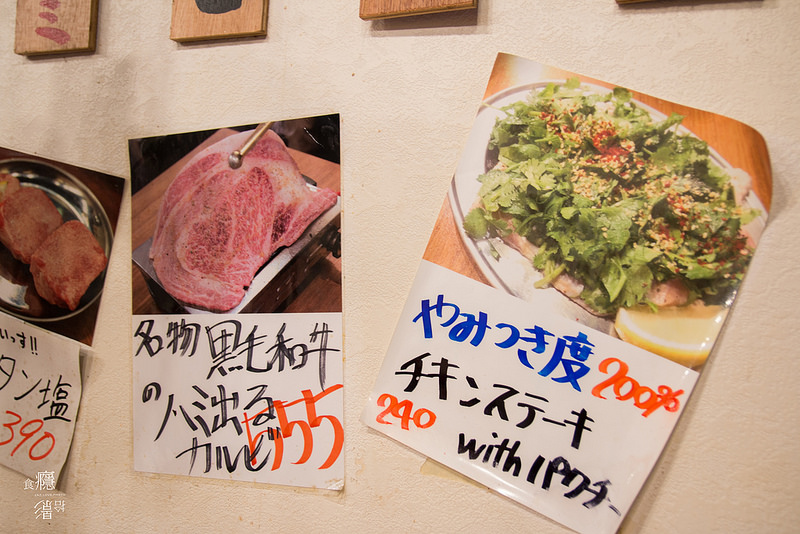 いっす!!
タン塩
390
名物 黒毛和牛
のハミ出る
カルビ 555
やみつき度 200%
チキンステーキ
240
with パクチー
食癮